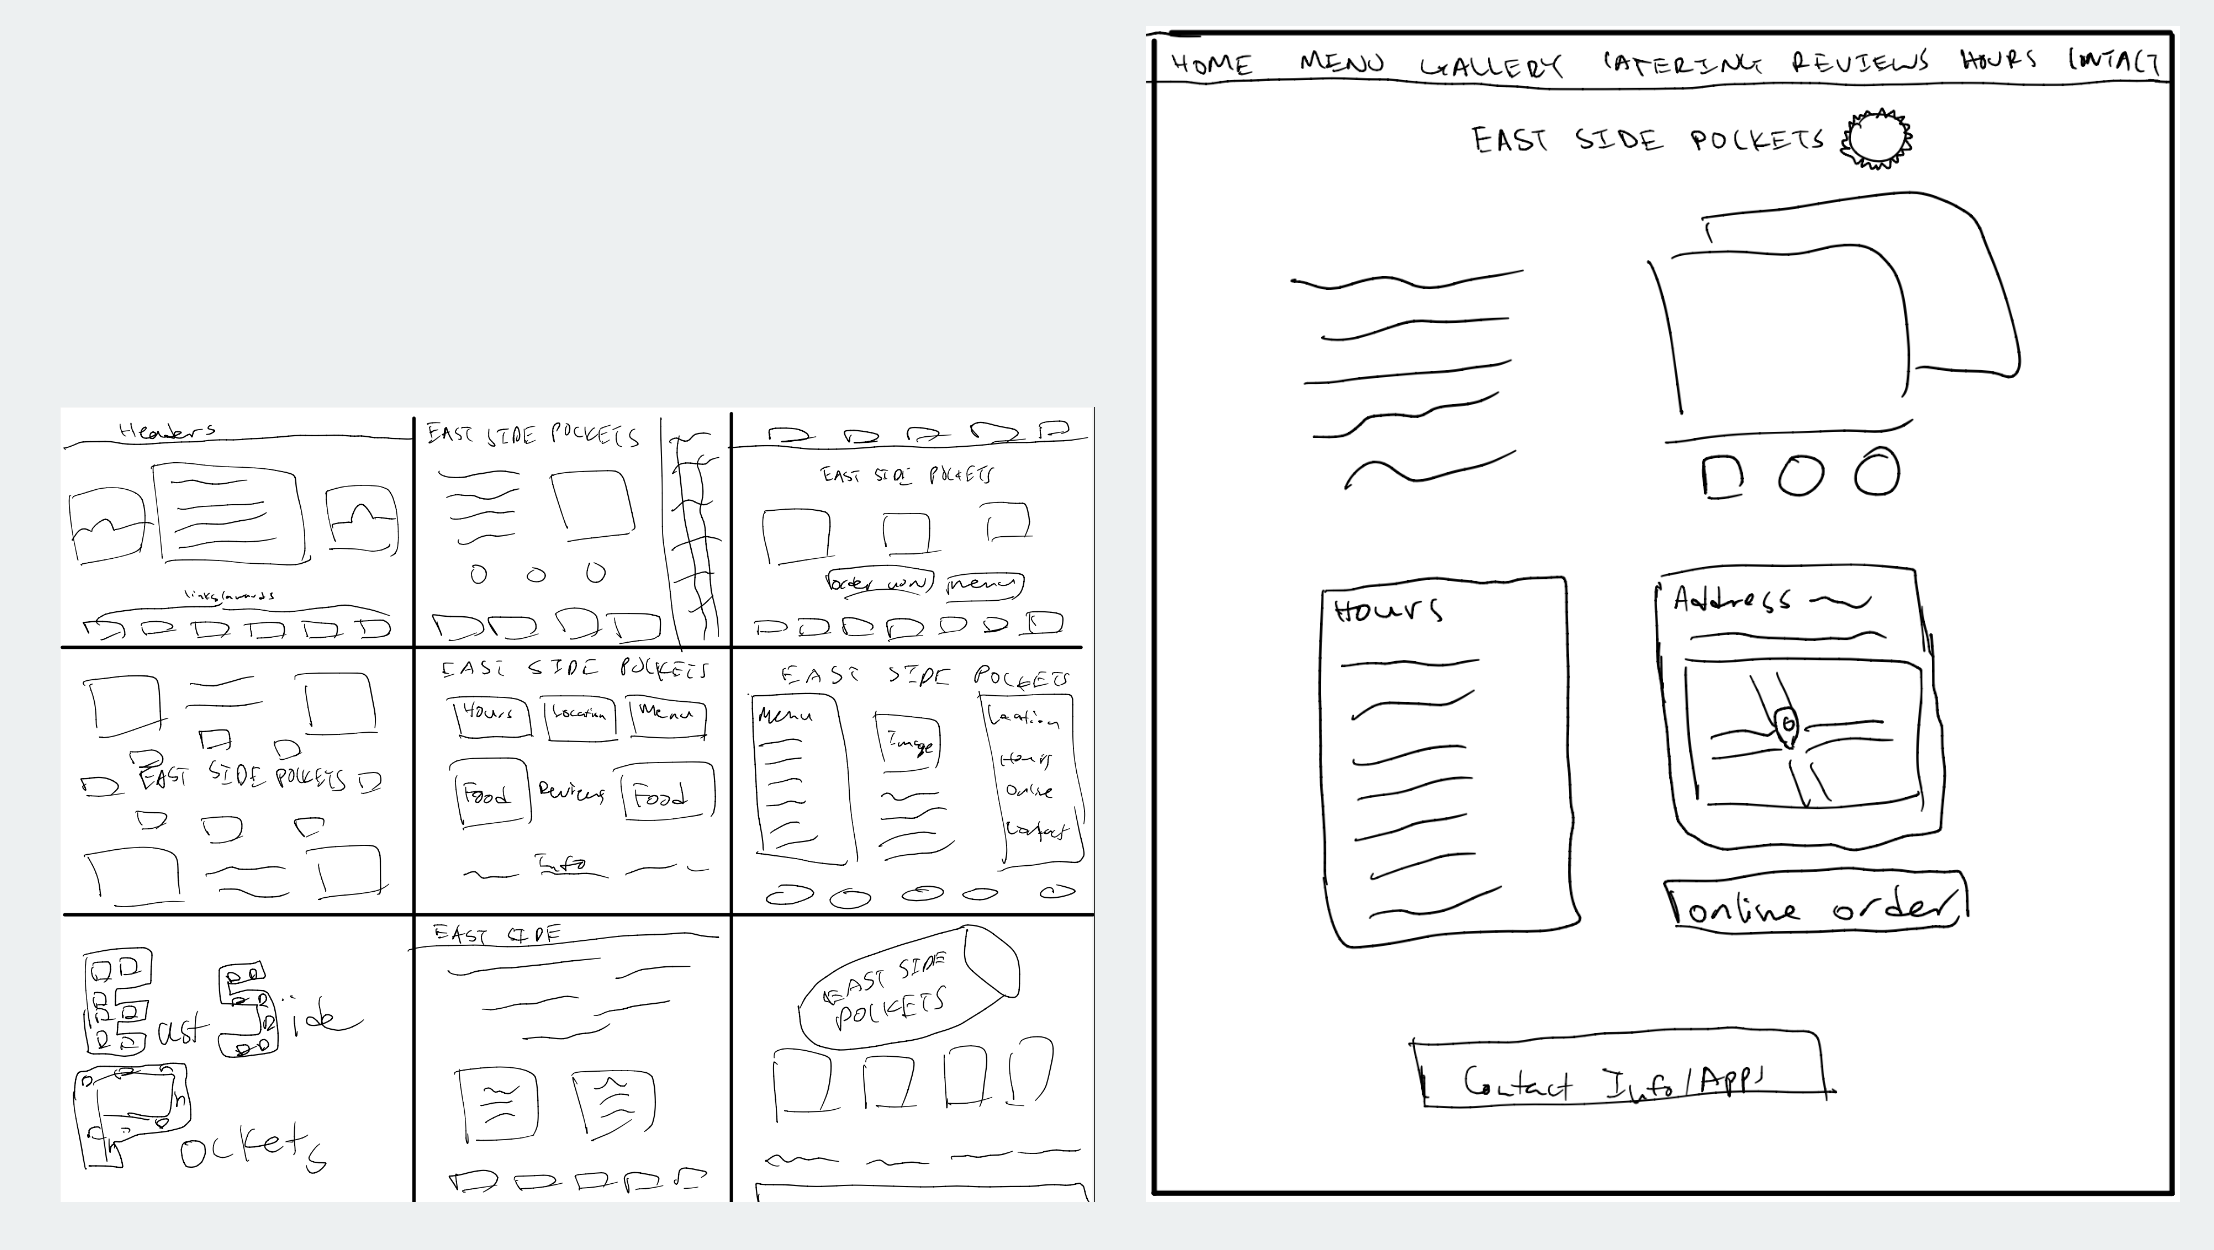 Headers
links/awards
EAST SIDE POCKETS
EAST SIDE POCKETS
order now menu
EAST SIDE POCKETS
EAST SIDE POCKETS
Hours Location Menu
Food Reviews Food
Info
EAST SIDE POCKETS
Menu
Image
Location
Hours
Online
Contact
East Side
Pockets
EAST SIDE
EAST SIDE
POCKETS
HOME MENU GALLERY CATERING REVIEWS HOURS CONTACT
EAST SIDE POCKETS
Hours
Address
online order
Contact Info/Apps